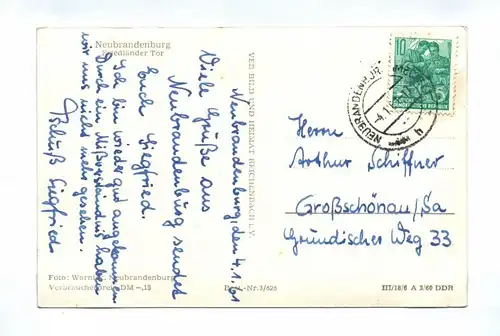 Neubrandenburg
Friedländer Tor
Neubrandenburg, den 4.1.61
Viele Grüße aus
Neubrandenburg sendet
Euch Siegfried.
Ich bin wieder gut angekommen.
Durch ein Mißverständnis haben
wir uns nicht mehr gesehen.
Tschüß Siegfried
VEB BILD UND HEIMAT REICHENBACH I. V.
Foto: Neubrandenburg
Verbraucherpreis DM -,15
Best.-Nr. 3/625
10
NEUBRANDENBURG
Herrn
Arthur Schiffner
Großschönau/Sa
Gründischer Weg 33
III/18/6 A 3/60 DDR